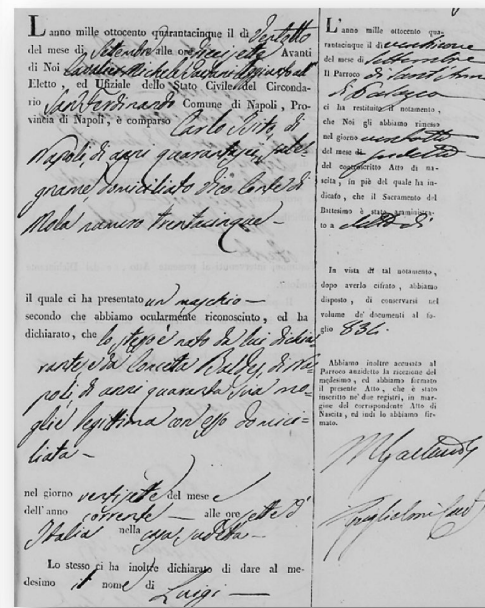 Lanno mille ottocento quarantacinque il dì Ventotto
del mese di Settembre alle ore dieci sette Avanti
di Noi Cavaliere Michele Gaetano
Eletto, ed Ufiziale dello Stato Civile del Circonda-
rio San Ferdinando Comune di Napoli, Pro-
vincia di Napoli, è comparso Carlo Brito, di
Napoli di anni quarantasei, fale-
gname, domiciliato Vico Conte di
Mola numero trentacinque —
il quale ci ha presentato un maschio —
secondo che abbiamo ocularmente riconosciuto, ed ha
dichiarato, che lo stesso è nato da lui dichia-
rante, e da Concetta di Na-
poli, di anni quaranta sua mo-
glie legittima con esso domici-
liata —
nel giorno ventisette del mese e
dell'anno corrente — alle ore sette d'
Italia nella casa sudetta —
Lo stesso ci ha inoltre dichiarato di dare al me-
desimo il nome di Luigi —
L'anno mille ottocento qua-
rantacinque il dì
del mese di Settembre
Il Parroco di Sant'Anna
di Palazzo
ci ha restituito il notamento,
che Noi gli abbiamo rimesso
nel giorno ventotto
del mese di sudetto —
del controscritto Atto di na-
scita, in piè del quale ha in-
dicato, che il Sacramento del
Battesimo è stato amministra-
to a detto dì
In vista di tal notamento,
dopo averlo cifrato, abbiamo
disposto, di conservarsi nel
volume de' documenti al fo-
glio 836.
Abbiamo inoltre accusato al
Parroco anzidetto la ricezione del
medesimo, ed abbiamo formato
il presente Atto, che è stato
inscritto ne' due registri, in mar-
gine del corrispondente Atto di
Nascita, ed indi lo abbiamo fir-
mato.
M Gaetano